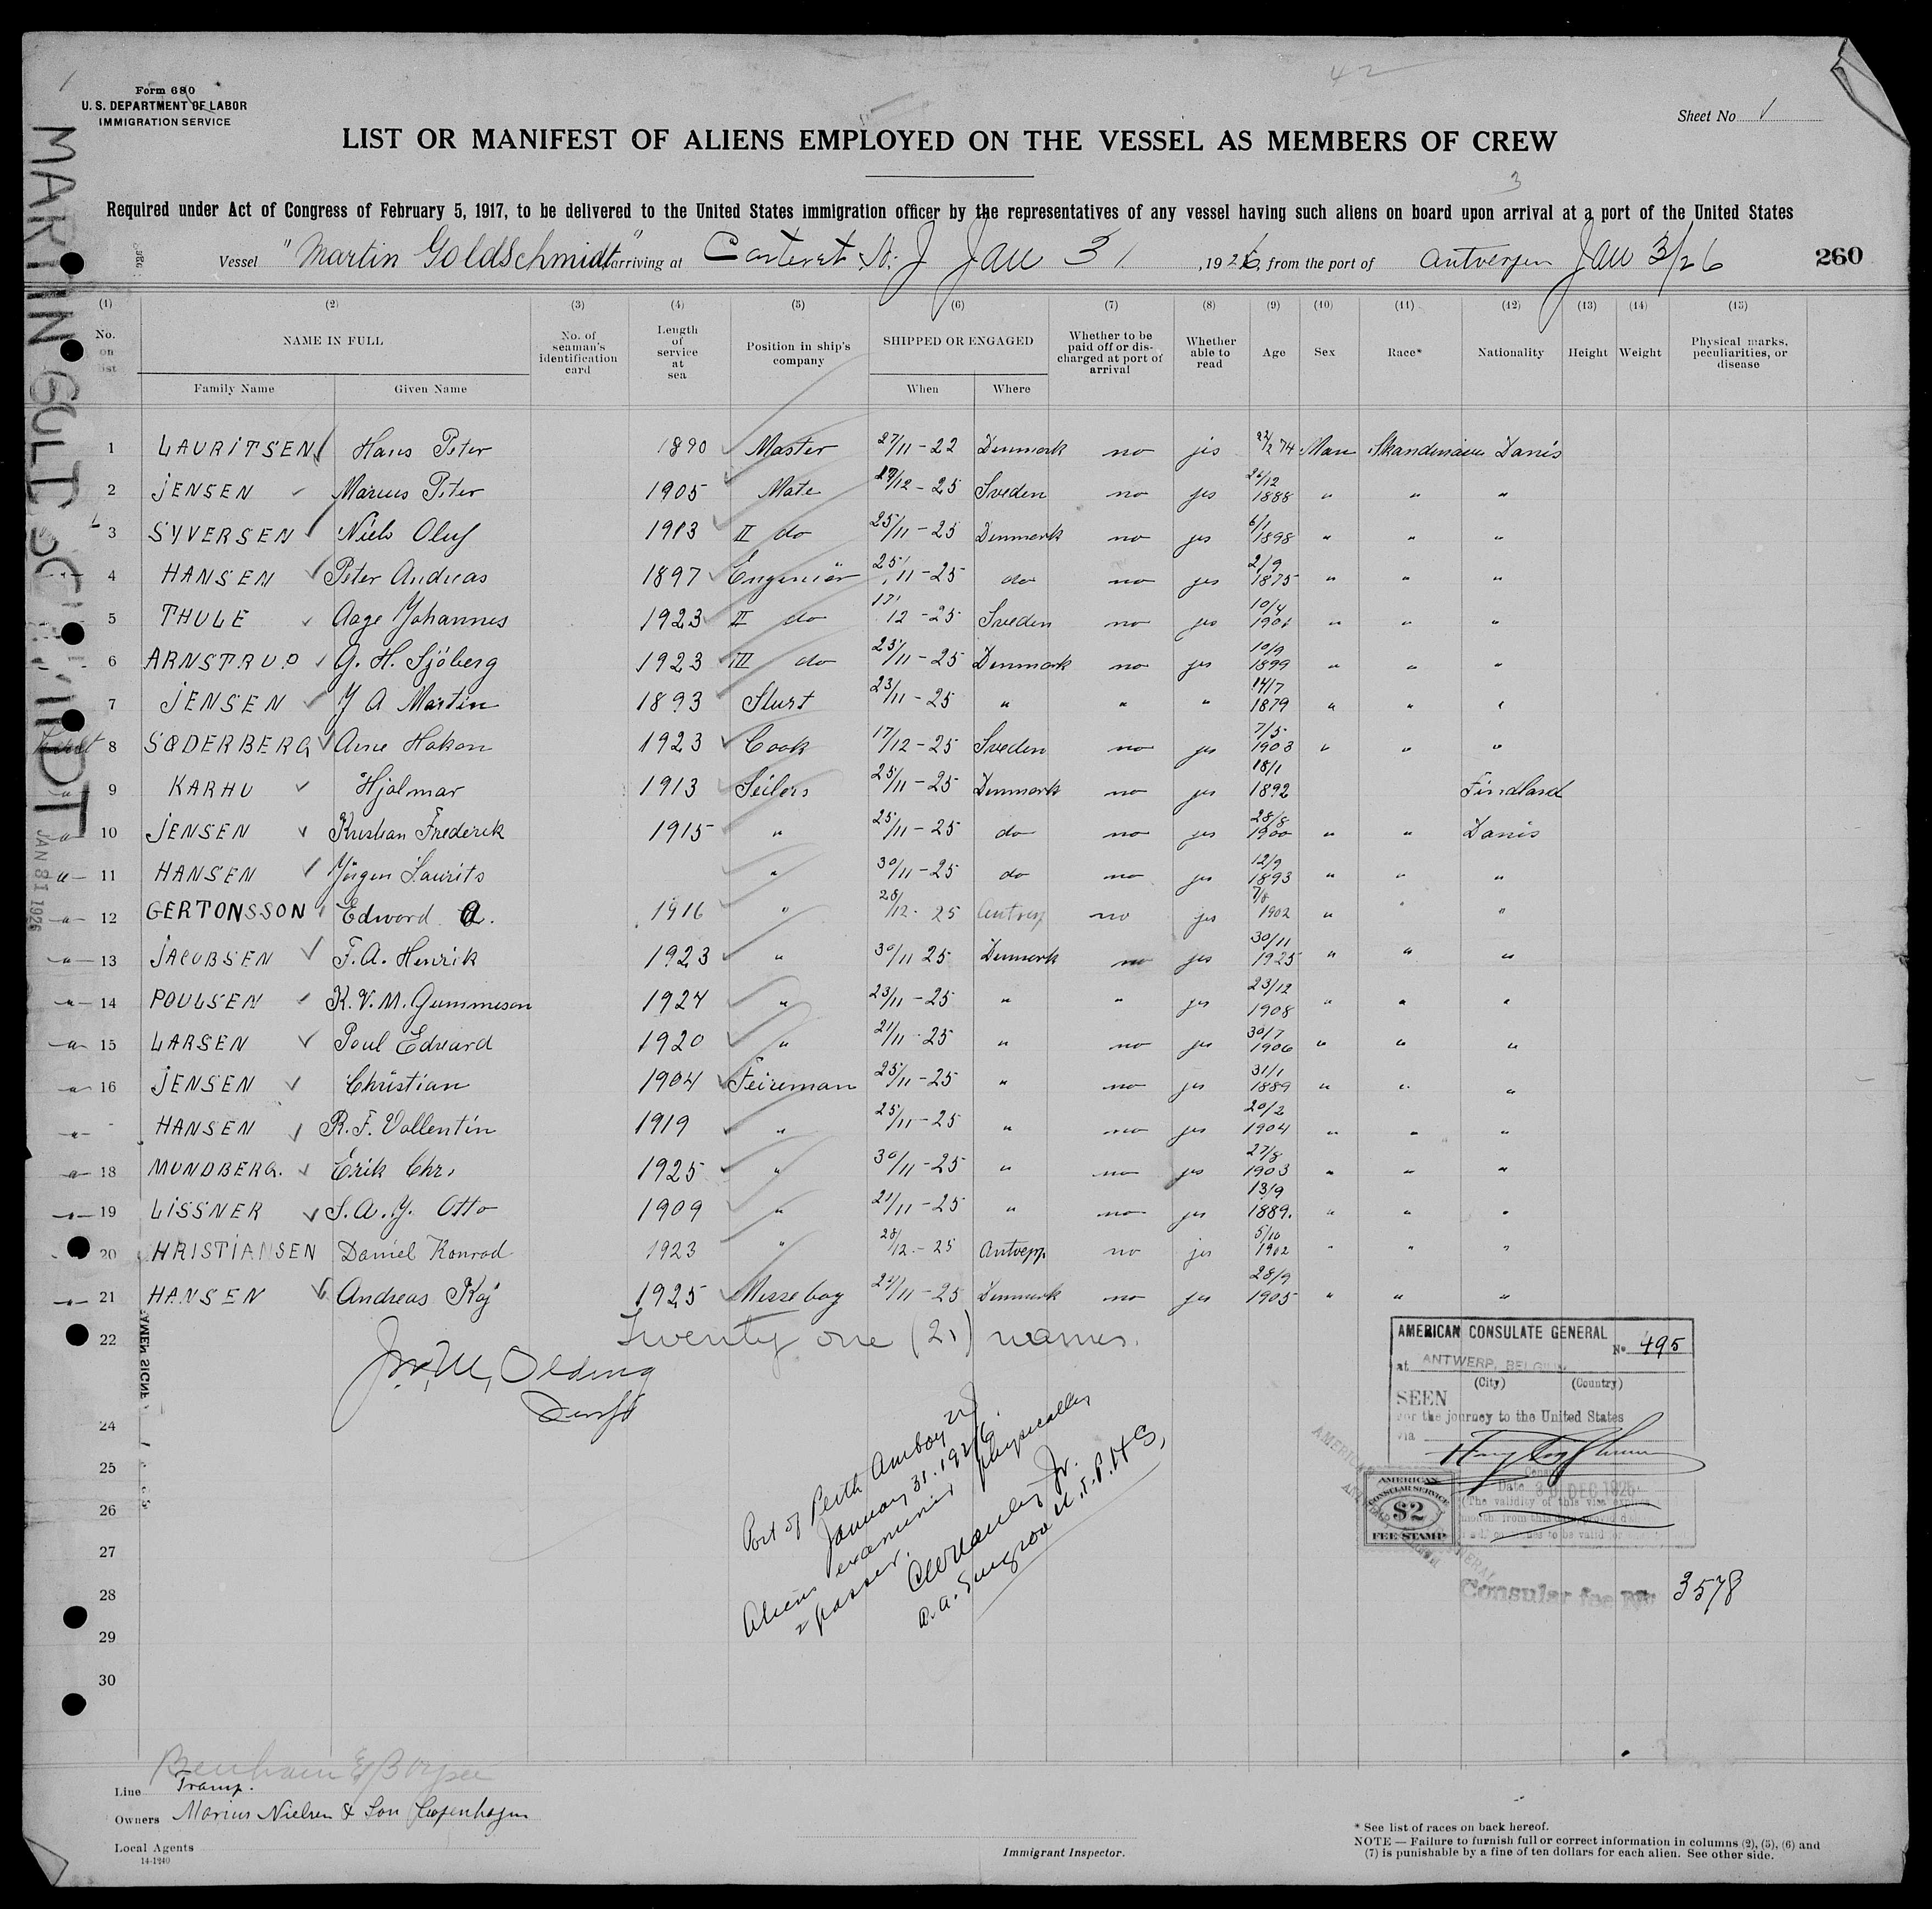 42
Form 680
U. S. DEPARTMENT OF LABOR
IMMIGRATION SERVICE
Sheet No 1
LIST OR MANIFEST OF ALIENS EMPLOYED ON THE VESSEL AS MEMBERS OF CREW
3
Required under Act of Congress of February 5, 1917, to be delivered to the United States immigration officer by the representatives of any vessel having such aliens on board upon arrival at a port of the United States
Vessel "Martin Goldschmidt" arriving at Carteret N. J Jan 31, 1926, from the port of Antverpen Jan 3/26 260
(1) (2) (3) (4) (5) (6) (7) (8) (9) (10) (11) (12) (13) (14) (15)
No. on list NAME IN FULL No. of seaman's identification card Length of service at sea Position in ship's company SHIPPED OR ENGAGED Whether to be paid off or discharged at port of arrival Whether able to read Age Sex Race* Nationality Height Weight Physical marks, peculiarities, or disease
Family Name Given Name When Where
1 LAURITSEN Hans Peter 1890 Master 27/11-22 Denmark no jes 22/2 74 Man Skandinaien Danis
2 JENSEN Marius Peter 1905 Mate 17/12-25 Sveden no jes 24/12 1888 " " "
3 SYVERSEN Niels Oluf 1913 II do 25/11-25 Denmark no jes 6/1 1898 " " "
4 HANSEN Peter Andreas 1897 Enginiör 25/11-25 do no jes 2/9 1875 " " "
5 THULE Aage Johannes 1923 II do 17/12-25 Sveden no jes 10/4 1901 " " "
6 ARNSTRUP G. H. Sjöberg 1923 III do 25/11-25 Denmark no jes 10/9 1899 " " "
7 JENSEN J A Martin 1893 Sturt 23/11-25 " " " 14/7 1879 " " "
8 SØDERBERG Arne Hakon 1923 Cook 17/12-25 Sveden no jes 7/5 1903 " " "
9 KARHU Hjalmar 1913 Seilers 25/11-25 Denmark no jes 18/1 1892 Findland
10 JENSEN Kristian Frederik 1915 " 25/11-25 do no jes 28/8 1900 " " Danis
11 HANSEN Jörgen Laurits " 30/11-25 do no jes 12/9 1893 " " "
12 GERTONSSON Edword A. 1916 " 28/12-25 Antverp no jes 7/8 1902 " " "
13 JACOBSEN F. A. Henrik 1923 " 30/11 25 Denmark no jes 30/11 1925 " " "
14 POULSEN K. V. M. Gummeson 1924 " 23/11-25 " " jes 23/12 1908 " " "
15 LARSEN Poul Edvard 1920 " 21/11-25 " no jes 30/7 1906 " " "
16 JENSEN Christian 1904 Feireman 25/11-25 " no jes 31/1 1889 " " "
HANSEN R. F. Vallentin 1919 " 25/11-25 " no jes 20/2 1904 " " "
18 MUNDBERG. Erik Chr. 1925 " 30/11-25 " no jes 27/8 1903 " " "
19 LISSNER S. A. Y. Otto 1909 " 21/11-25 " no jes 13/9 1889. " " "
20 HRISTIANSEN Daniel Konrad 1923 " 28/12.-25 Antverp. no jes 5/10 1902 " " "
21 HANSEN Andreas Kaj 1925 Messeboy 22/11-25 Denmark no jes 28/9 1905 " " "
22 Twenty one (21) names.
24
25
26
27
28
29
30
Port of Perth Amboy NJ
January 31. 1926.
Aliens examined physically
& passed.
A. A. Surgeon U.S.P.H.S.
AMERICAN CONSULATE GENERAL
No 495
at ANTWERP, BELGIUM
(City) (Country)
SEEN
For the journey to the United States
via
Date 30 DEC 1925
(The validity of this visa expires
AMERICAN CONSULAR SERVICE
$2
FEE STAMP
Consular fee No 3578
MARTIN GOLDSCHMIDT
JAN 31 1926
Line Tramp.
Owners Marius Nielsen & Son Copenhagen
Local Agents
14-1240
Immigrant Inspector.
* See list of races on back hereof.
NOTE — Failure to furnish full or correct information in columns (2), (5), (6) and
(7) is punishable by a fine of ten dollars for each alien. See other side.